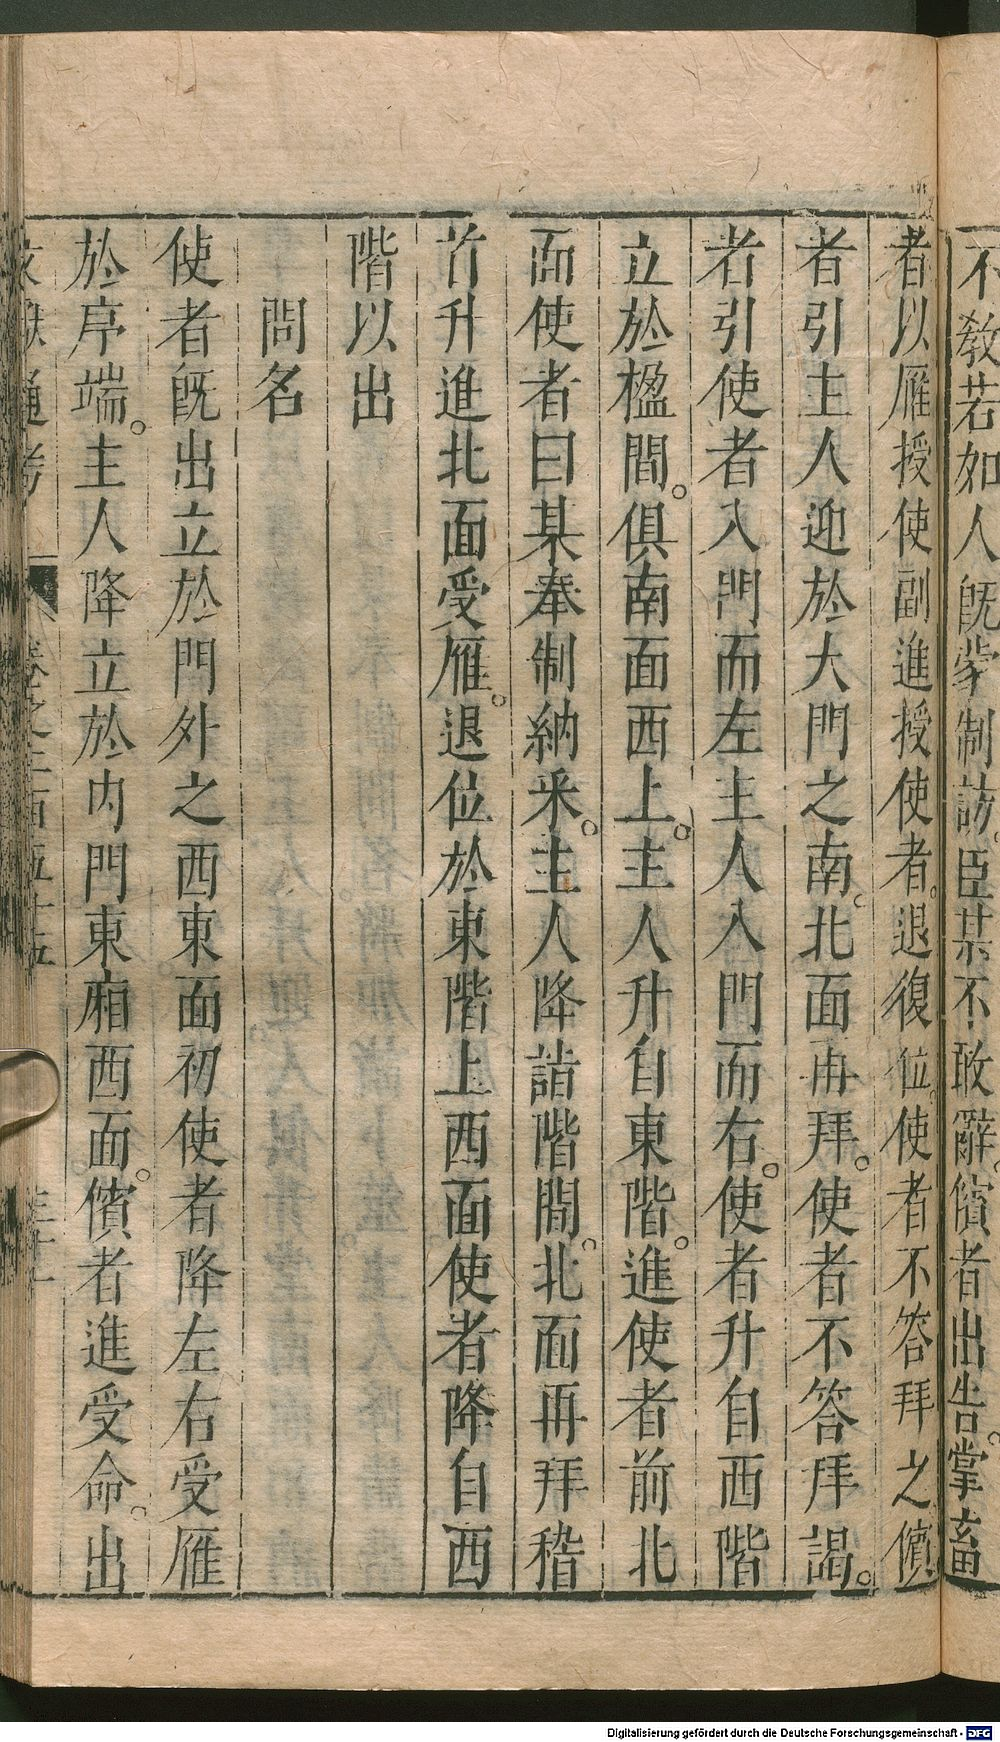 不教若如人既蒙制訪臣某不敢辭儐者出告掌畜
者以雁授使副進授使者退復位使者不答拜之儐
者引主人迎於大門之南北面再拜使者不答拜謁
者引使者入門而左主人入門而右使者升自西階
立於楹間俱南面西上主人升自東階進使者前北
面使者曰某奉制納采主人降詣階間北面再拜稽
首升進北面受雁退位於東階上西面使者降自西
階以出
問名
使者既出立於門外之西東面初使者降左右受雁
於序端主人降立於內門東廂西面儐者進受命出
通考
卷之二百五十五
Digitalisierung gefördert durch die Deutsche Forschungsgemeinschaft - DFG